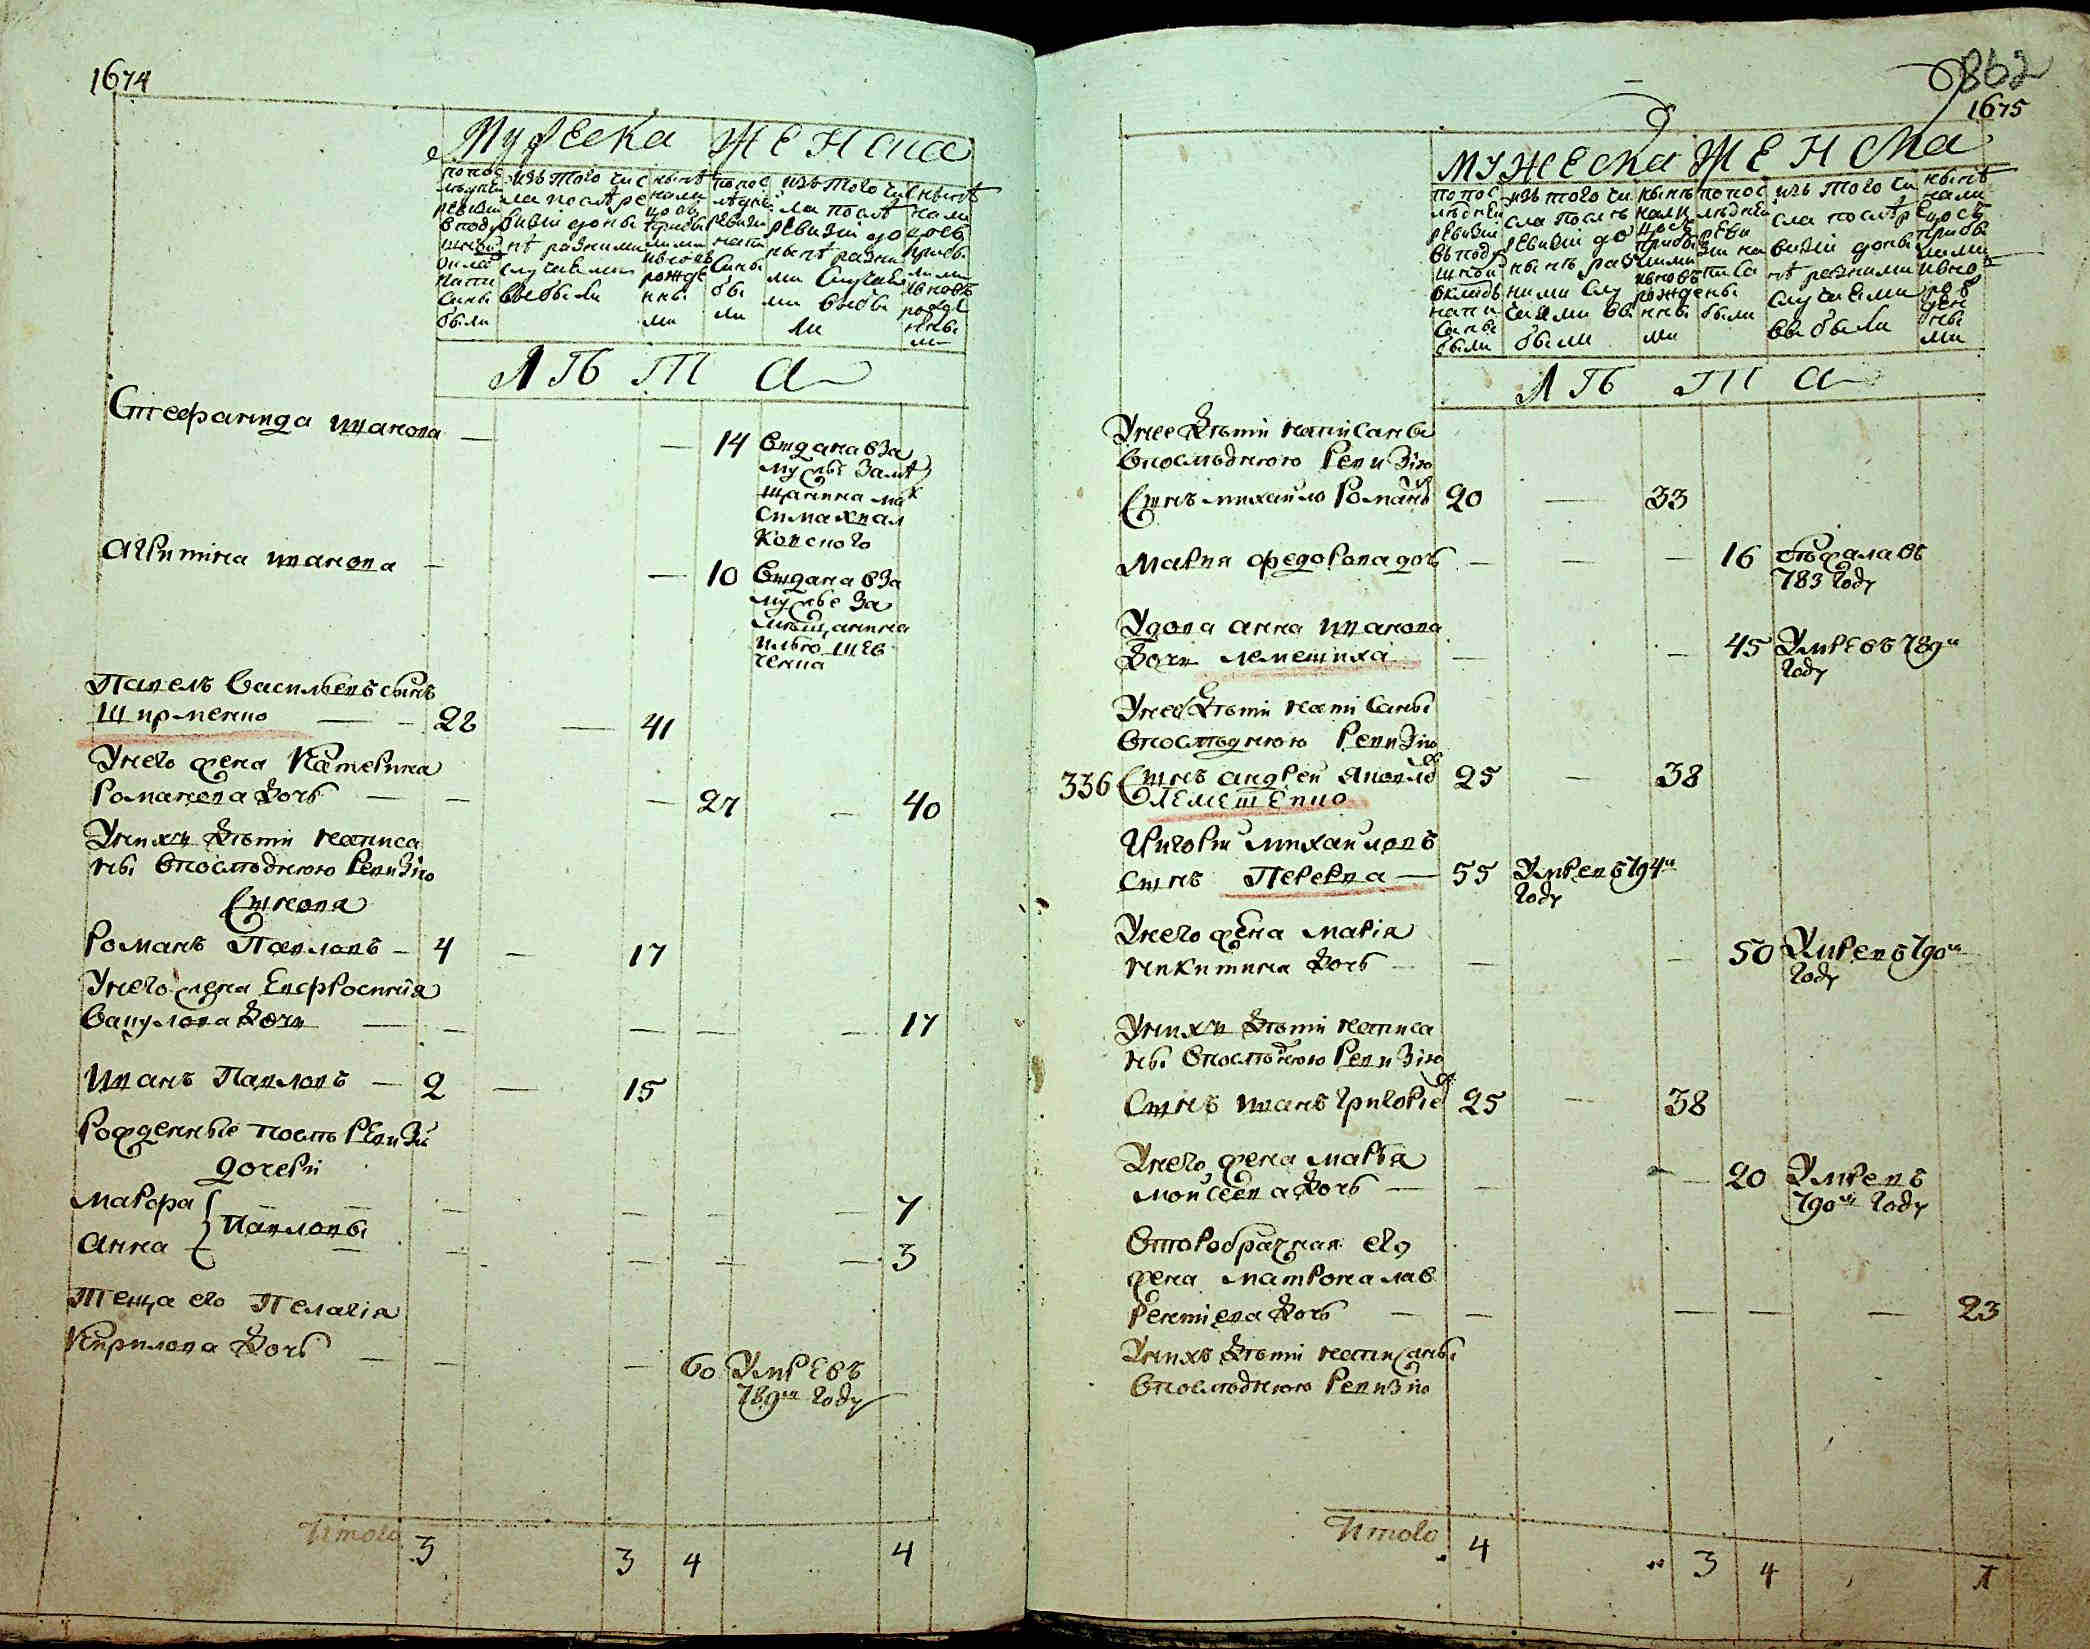 1674
Мужеска Женска
по пос
лѣдней
ревизіи
в поду
шной
окладъ
напи
саны
были
изъ того чис
ла послѣ ре
визіи до ны
нѣ разными
случаями
выбыли
нынѣ
нали
цо съ
прибы
лыми
и вновь
рожде
нны
ми
по пос
лѣдне
ревизи
напи
саны
бы
ли
изъ того чис
ла послѣ
ревизіи до
нынѣ разны
ми случая
ми выбы
ли
нынѣ
нали
цо съ
прибы
лыми
и вновь
рожде
нны
ми
Лѣта
Стефанида иванова — — 14 отдана в за
мужъ за мѣ
щанина мак
сима хвал
ковского
Агрипина иванова — — 10 отдана в за
мужье за
мѣщанина
илью шев
ченка
Павелъ Васильевъ сынъ
Ширменко — 28 — 41
У него жена Катерина
романова дочь — — — 27 — 40
У нихъ дѣти написа
ны в последнюю ревизію
Сыновя
Романъ Павловъ — 4 — 17
У него жена Евфросинія
Вакулова дочь — — — — — 17
Иванъ Павловъ — 2 — 15
Рожденные послѣ ревизіи
дочери
Мавра — — — — — 7
Павловы
Анна — — — — — 3
Теща его Пелагія
Кирилова дочь — — — 60 Умре въ
789м году
Итого 3 3 4 4
862
1675
Мужеска Женска
по пос
лѣдней
ревизіи
въ поду
шной
окладъ
напи
саны
были
изъ того чи
сла послѣ
ревизіи до
нынѣ раз
ними слу
чаями вы
были
нынѣ
нали
цо съ
прибы
лыми
и вновь
рожде
нны
ми
по пос
лѣдней
реви
зіи на
писа
ны
были
изъ того чи
сла послѣ ре
визіи до ны
нѣ разними
случаями
выбыли
нынѣ
нали
цо съ
прибы
лыми
и вно
рож
ден
ны
ми
Лѣта
У нее дѣти написаны
в последнюю ревизію
Сынъ михайло романов 20 — 33
Мария федорова дочь — — — 16 бѣжала въ
783 году
Удова анна иванова
дочь лемешиха — — 45 Умре въ 789м
году
У нее дѣти написаны
в последнюю ревизію
336 Сынъ андрей яковлев 25 — 38
Лемешенко
Григорій михайловъ
сынъ Перерва — 55 Умре въ 794м
году
У него жена марія
никитина дочь — — — 50 Умре въ 790м
году
У нихъ дѣти написа
ны в последнюю ревизію
Сынъ иванъ григорьев 25 — 38
У него жена марія
мойсеева дочь — — — 20 Умре въ
790м году
Второбрачная его
жена матрона лав
рентіева дочь — — — — — 23
У нихъ дѣти написаны
в последнюю ревизію
Итого 4 3 4 1